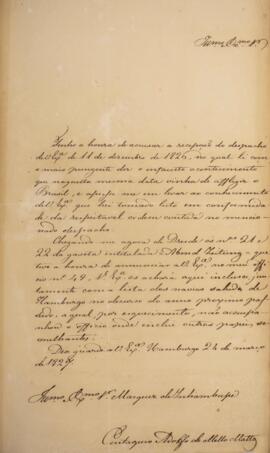 Illmo. Exmo. Sr.
Tenho a honra de accusar a recepção do despacho
de V. Exa. de 11 de dezembro de 1826, no qual li com
o mais pungente dor o infausto acontecimento
que naquella mesma data vinha de affligir o
Brasil, e apresso me em levar ao conhecimento
de V. Exa. que hei tomado luto em conformida-
de da respeitavel ordem contida no mencio-
nado despacho.
Chegando me agora de Dresde os nos. 21 e
22 da gazeta intitulada Abend Zeitung e que
tive a honra de annunciar a V. Exa. no officio
no. 49, V. Exa. os achará aqui inclusos, jun-
tamente com a lista dos navios sahidos de
Hamburgo no decurso do anno proximo pas-
sado, a qual, por esquecimento, não accompa-
nhou o officio onde inclue outros papeis se-
melhantes.
Deos guarde a V. Exa. Hamburgo 24 de março
de 1827.
Illmo. Exmo. Sr. Marquez de Inhambupe
Eustaquio Adolfo de Mello Mattos